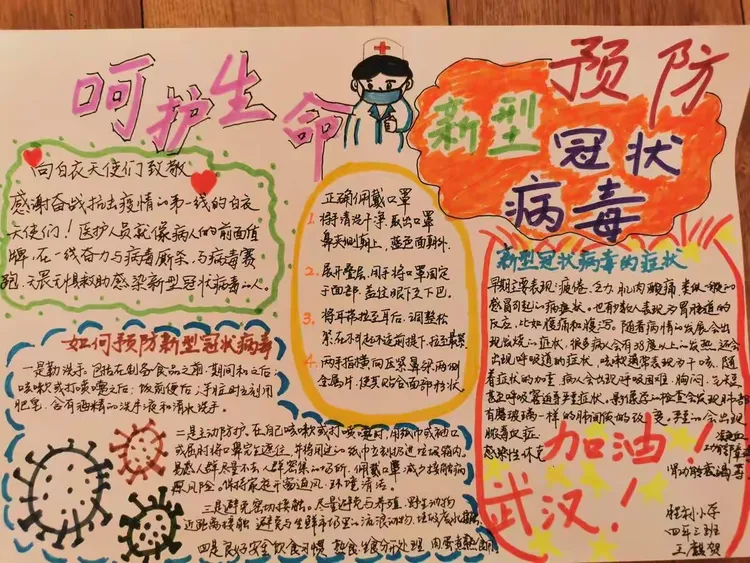 呵护生命
预防
新型
冠状
病毒
向白衣天使们致敬
感谢奋战抗击疫情的第一线的白衣
天使们！医护人员就像病人们的前面盾
牌，在一线奋力与病毒厮杀，与病毒赛
跑，无畏无惧救助感染新型冠状病毒的人。
正确佩戴口罩
1. 将手清洗干净，取出口罩
鼻夹侧朝上，蓝色面朝外。
2. 展开叠层，用手将口罩固定
于面部，盖住眼下至下巴。
3. 将耳袋拉至耳后，调整松
紧
4. 两手指横向压紧鼻梁两侧
金属片，使其贴合面部形状。
如何预防新型冠状病毒
一是勤洗手。包括在制备食品之前，期间和之后；
咳嗽或打喷嚏之后；饭前便后；手脏时立刻用
肥皂，含有酒精的洗手液和清水洗手。
二是主动防护，在自己咳嗽或打喷嚏时，用纸巾或袖口
或屈肘将口鼻完全遮住，并将用过的纸巾立刻扔进垃圾箱内，
易感人群尽量不去人群密集的场所，佩戴口罩减少接触病
原风险。保持家庭开窗通风，环境清洁。
三是避免密切接触。尽量避免与养殖、野生动物
近距离接触，避免与生鲜市场里的流浪动物、
四是良好安全饮食习惯，熟食，生食分开处理，肉蛋煮熟
新型冠状病毒的症状
早期主要表现：疲倦，乏力，肌肉酸痛，类似一般的
感冒引起的病症状。也有少数人表现为胃肠道的
反应，比如腹痛和腹泻。随着病情的发展会出
现发烧的症状，很多病人会有38度以上的发热，还会
出现呼吸道的症状，咳嗽通常表现为干咳，随
着症状的加重，病人会出现呼吸困难，胸闷，
甚至呼吸窘迫等重症状，
有磨玻璃一样的肺间质的改变，严重的会出现
脓毒血症
感染性休克
加油！
武汉！
胜利小学
四年三班